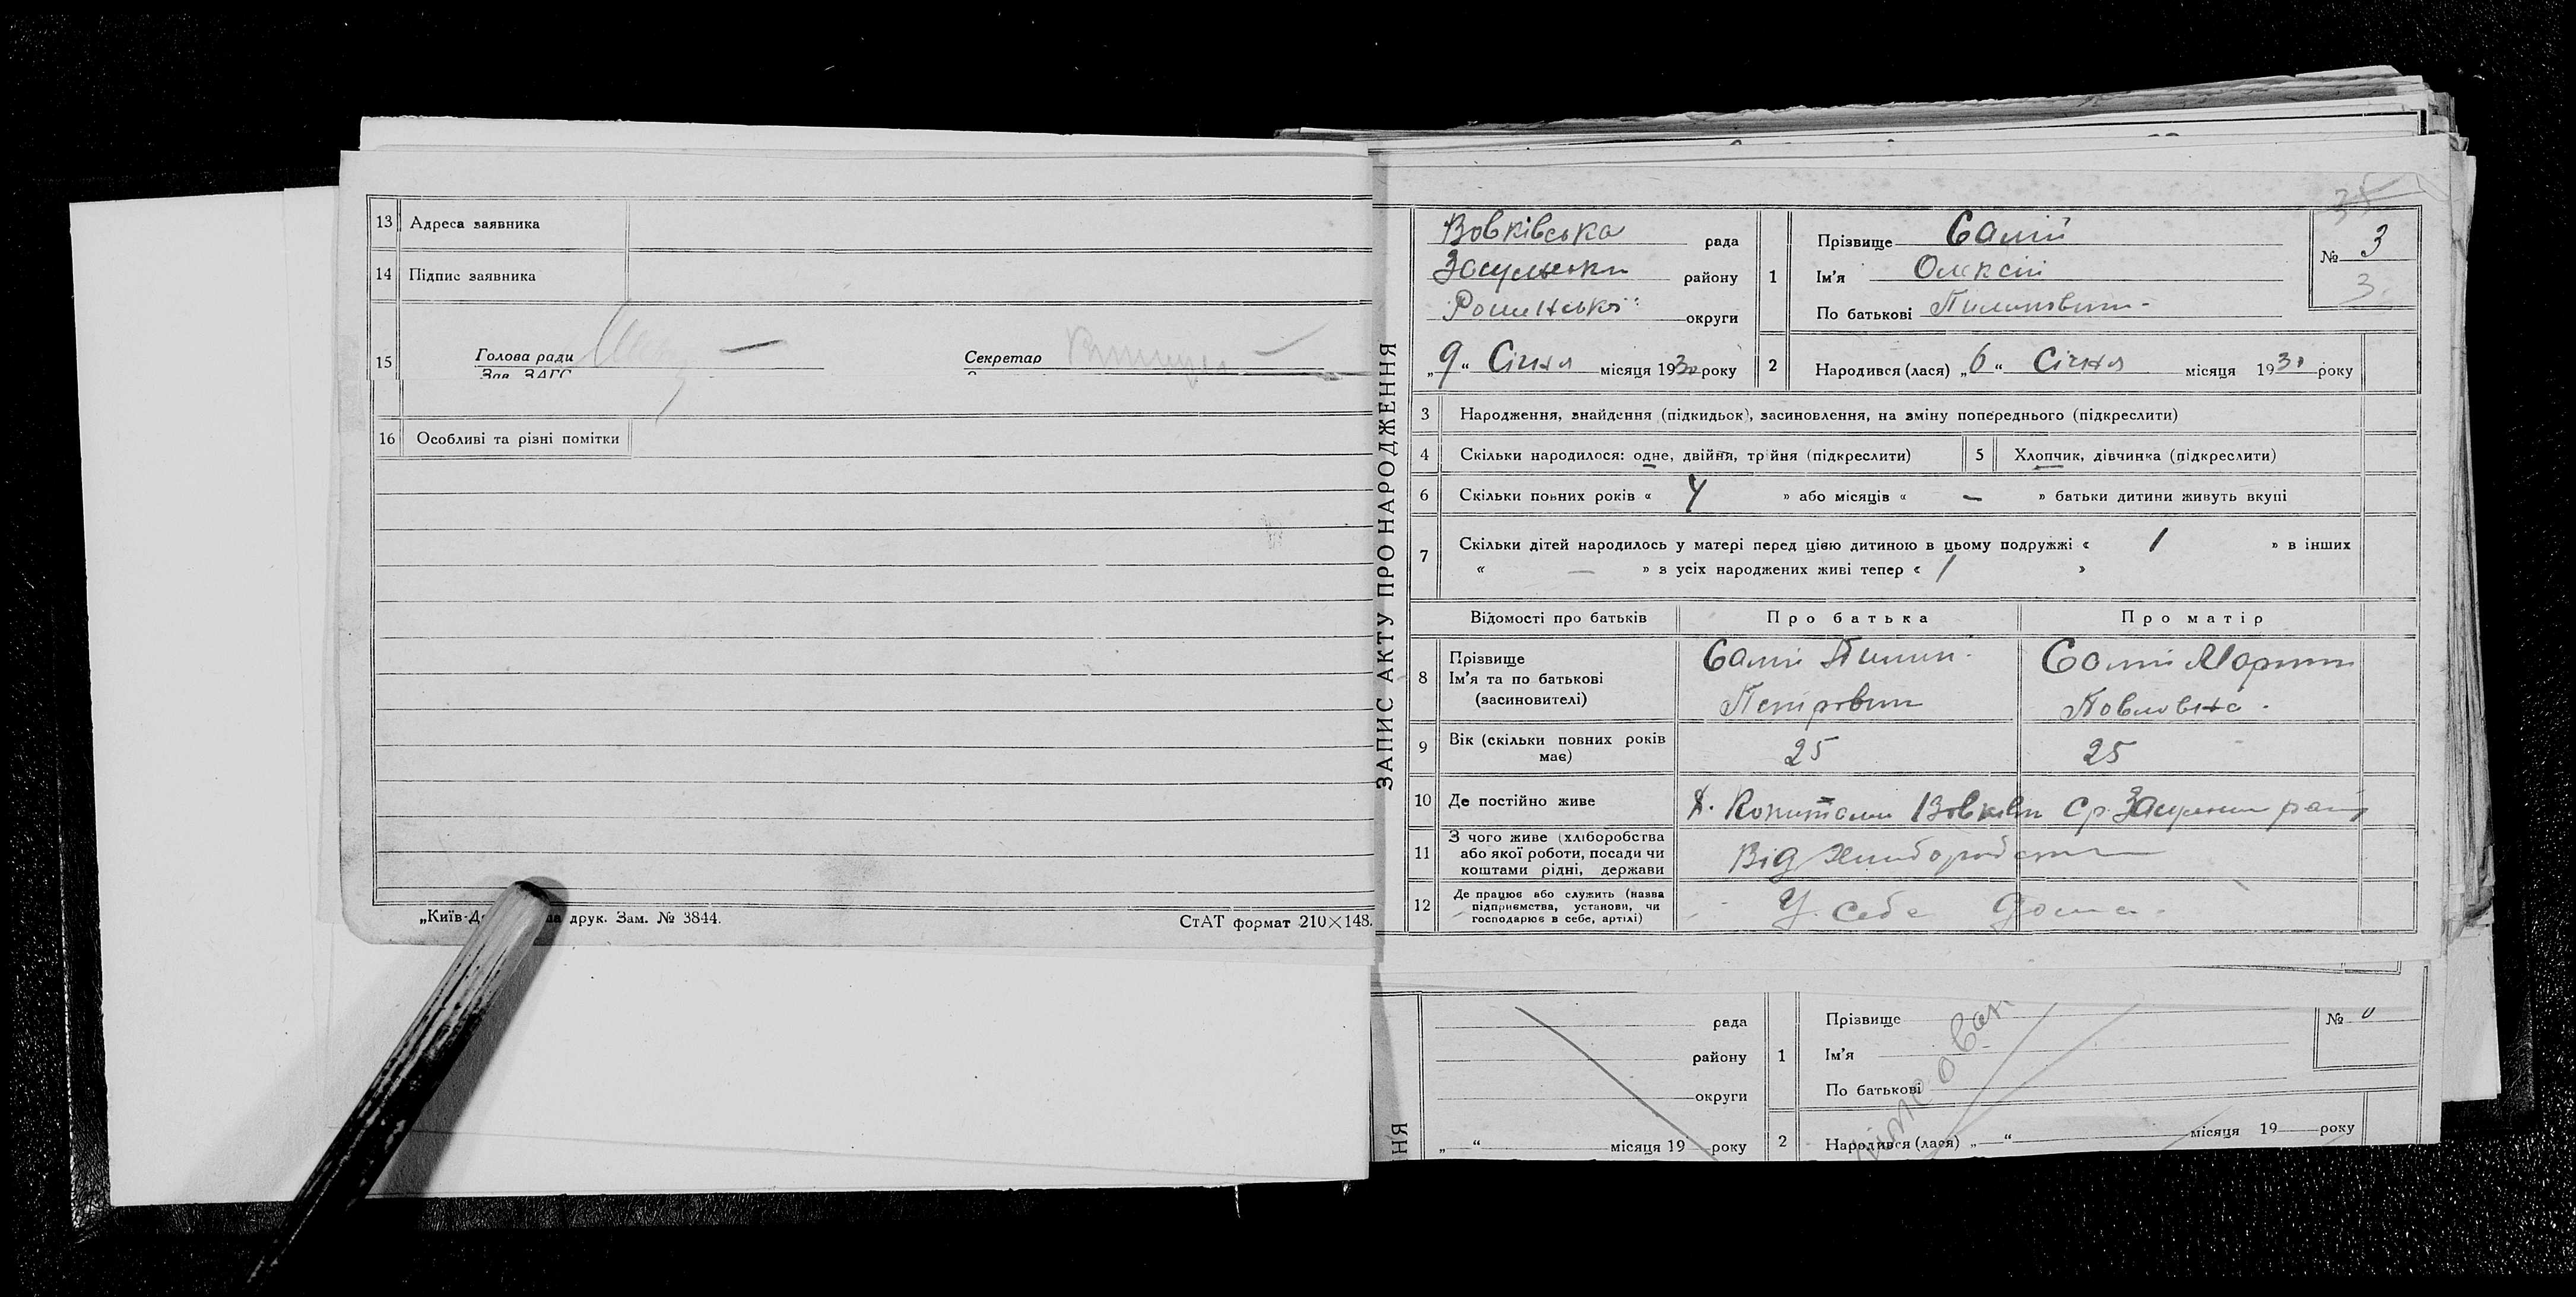 13 Адреса заявника
14 Підпис заявника
15 Голова ради Секретар
Зав. ЗАГС
16 Особливі та різні помітки
„Київ-Д друк. Зам. № 3844.
СтАТ формат 210×148.
ЗАПИС АКТУ ПРО НАРОДЖЕННЯ
35
Вовківська рада
району
Роменської округи
„9“ Січня місяця 1930 року
1 Прізвище Самій
Ім'я Олексій
По батькові Пилипович
№ 3
3.
2 Народився (лася) „6“ Січня місяця 1930 року
3 Народження, знайдення (підкидьок), засиновлення, на зміну попереднього (підкреслити)
4 Скільки народилося: одне, двійня, трійня (підкреслити) 5 Хлопчик, дівчинка (підкреслити)
6 Скільки повних років « 4 » або місяців « — » батьки дитини живуть вкупі
7 Скільки дітей народилось у матері перед цією дитиною в цьому подружжі « 1 » в інших
« — » з усіх народжених живі тепер « 1 »
Відомості про батьків Про батька Про матір
8 Прізвище Самій Пилип Самій
Ім'я та по батькові
(засиновителі) Петрович Павловна
9 Вік (скільки повних років 25 25
має)
10 Де постійно живе х. с/р. рай
11 З чого живе (хліборобства
або якої роботи, посади чи Від Хліборобства
коштами рідні, держави
12 Де працює або служить (назва
підприємства, установи, чи У себе дома
господарює в себе, артілі)
рада
району
округи
„ “ місяця 19 року
1 Прізвище
Ім'я
По батькові
№
2 Народився (лася) „ “ місяця 19 року
ННЯ